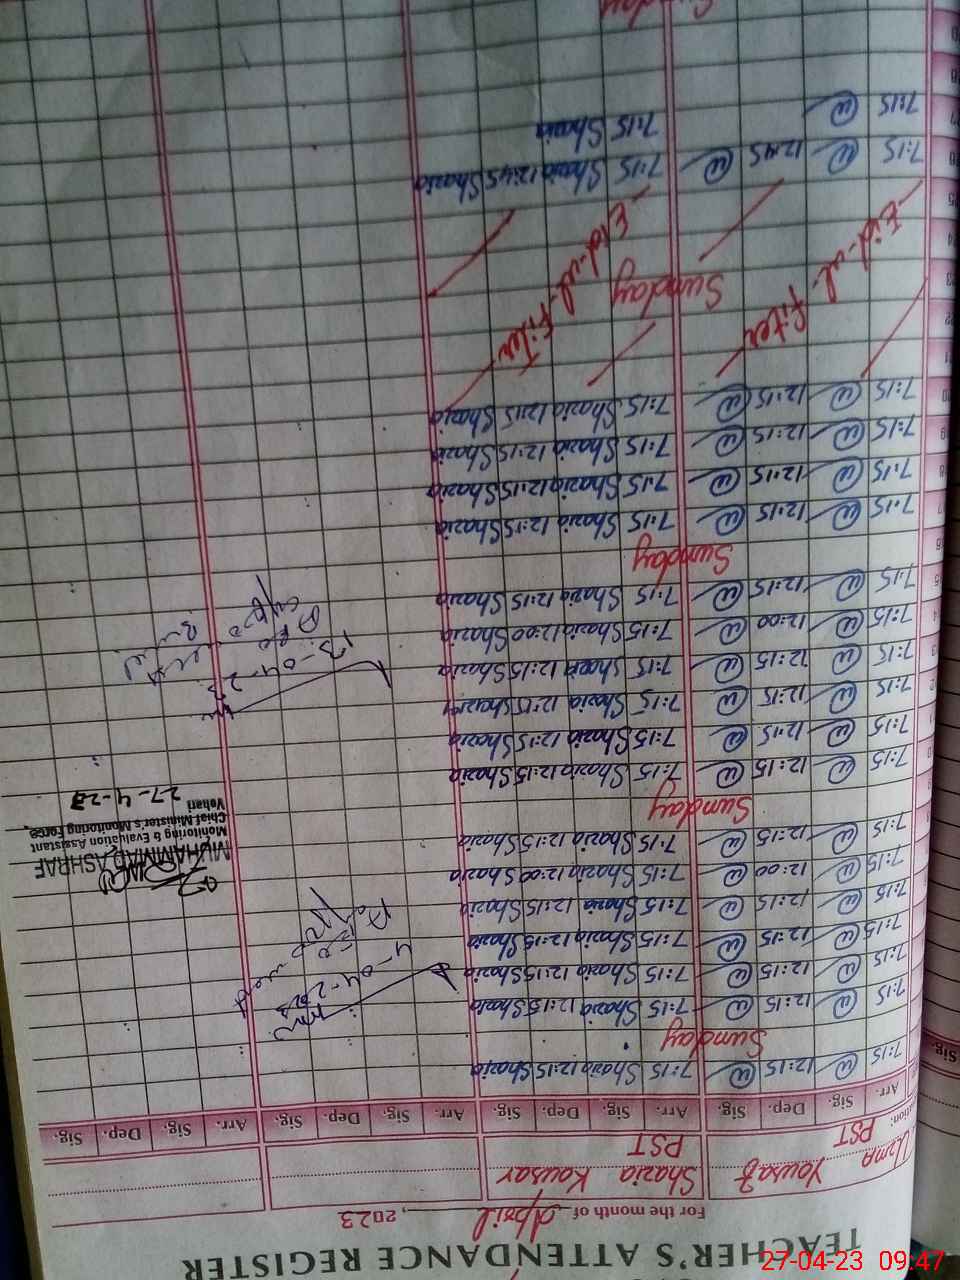 TEACHER'S ATTENDANCE REGISTER
For the month of April, 2023
Uzma Yousaf Shazia Kousar
PST PST
Arr. Sig. Dep. Sig. Arr. Sig. Dep. Sig. Arr. Sig. Dep. Sig. Arr. Sig. Dep. Sig.
7:15 12:15 7:15 Shazia 12:15 Shazia
Sunday
7:15 12:15 7:15 Shazia 12:15 Shazia
7:15 12:15 7:15 Shazia 12:15 Shazia
7:15 12:15 7:15 Shazia 12:15 Shazia
7:15 12:15 7:15 Shazia 12:15 Shazia
7:15 12:00 7:15 Shazia 12:00 Shazia
7:15 12:15 7:15 Shazia 12:15 Shazia
Sunday
7:15 12:15 7:15 Shazia 12:15 Shazia
7:15 12:15 7:15 Shazia 12:15 Shazia
7:15 12:15 7:15 Shazia 12:15 Shazia
7:15 12:15 7:15 Shazia 12:15 Shazia
7:15 12:00 7:15 Shazia 12:00 Shazia
7:15 12:15 7:15 Shazia 12:15 Shazia
Sunday
7:15 12:15 7:15 Shazia 12:15 Shazia
7:15 12:15 7:15 Shazia 12:15 Shazia
7:15 12:15 7:15 Shazia 12:15 Shazia
7:15 12:15 7:15 Shazia 12:15 Shazia
Eid-ul-Fiter Sunday Eid-ul-Fiter
7:15 12:45 7:15 Shazia 12:45 Shazia
7:15 7:15 Shazia
Sunday
4-04-2023
MUHAMMAD ASHRAF
Monitoring & Evaluation Assistant
Chief Minister's Monitoring Force,
Vehari
27-4-23
13-04-23
27-04-23 09:47